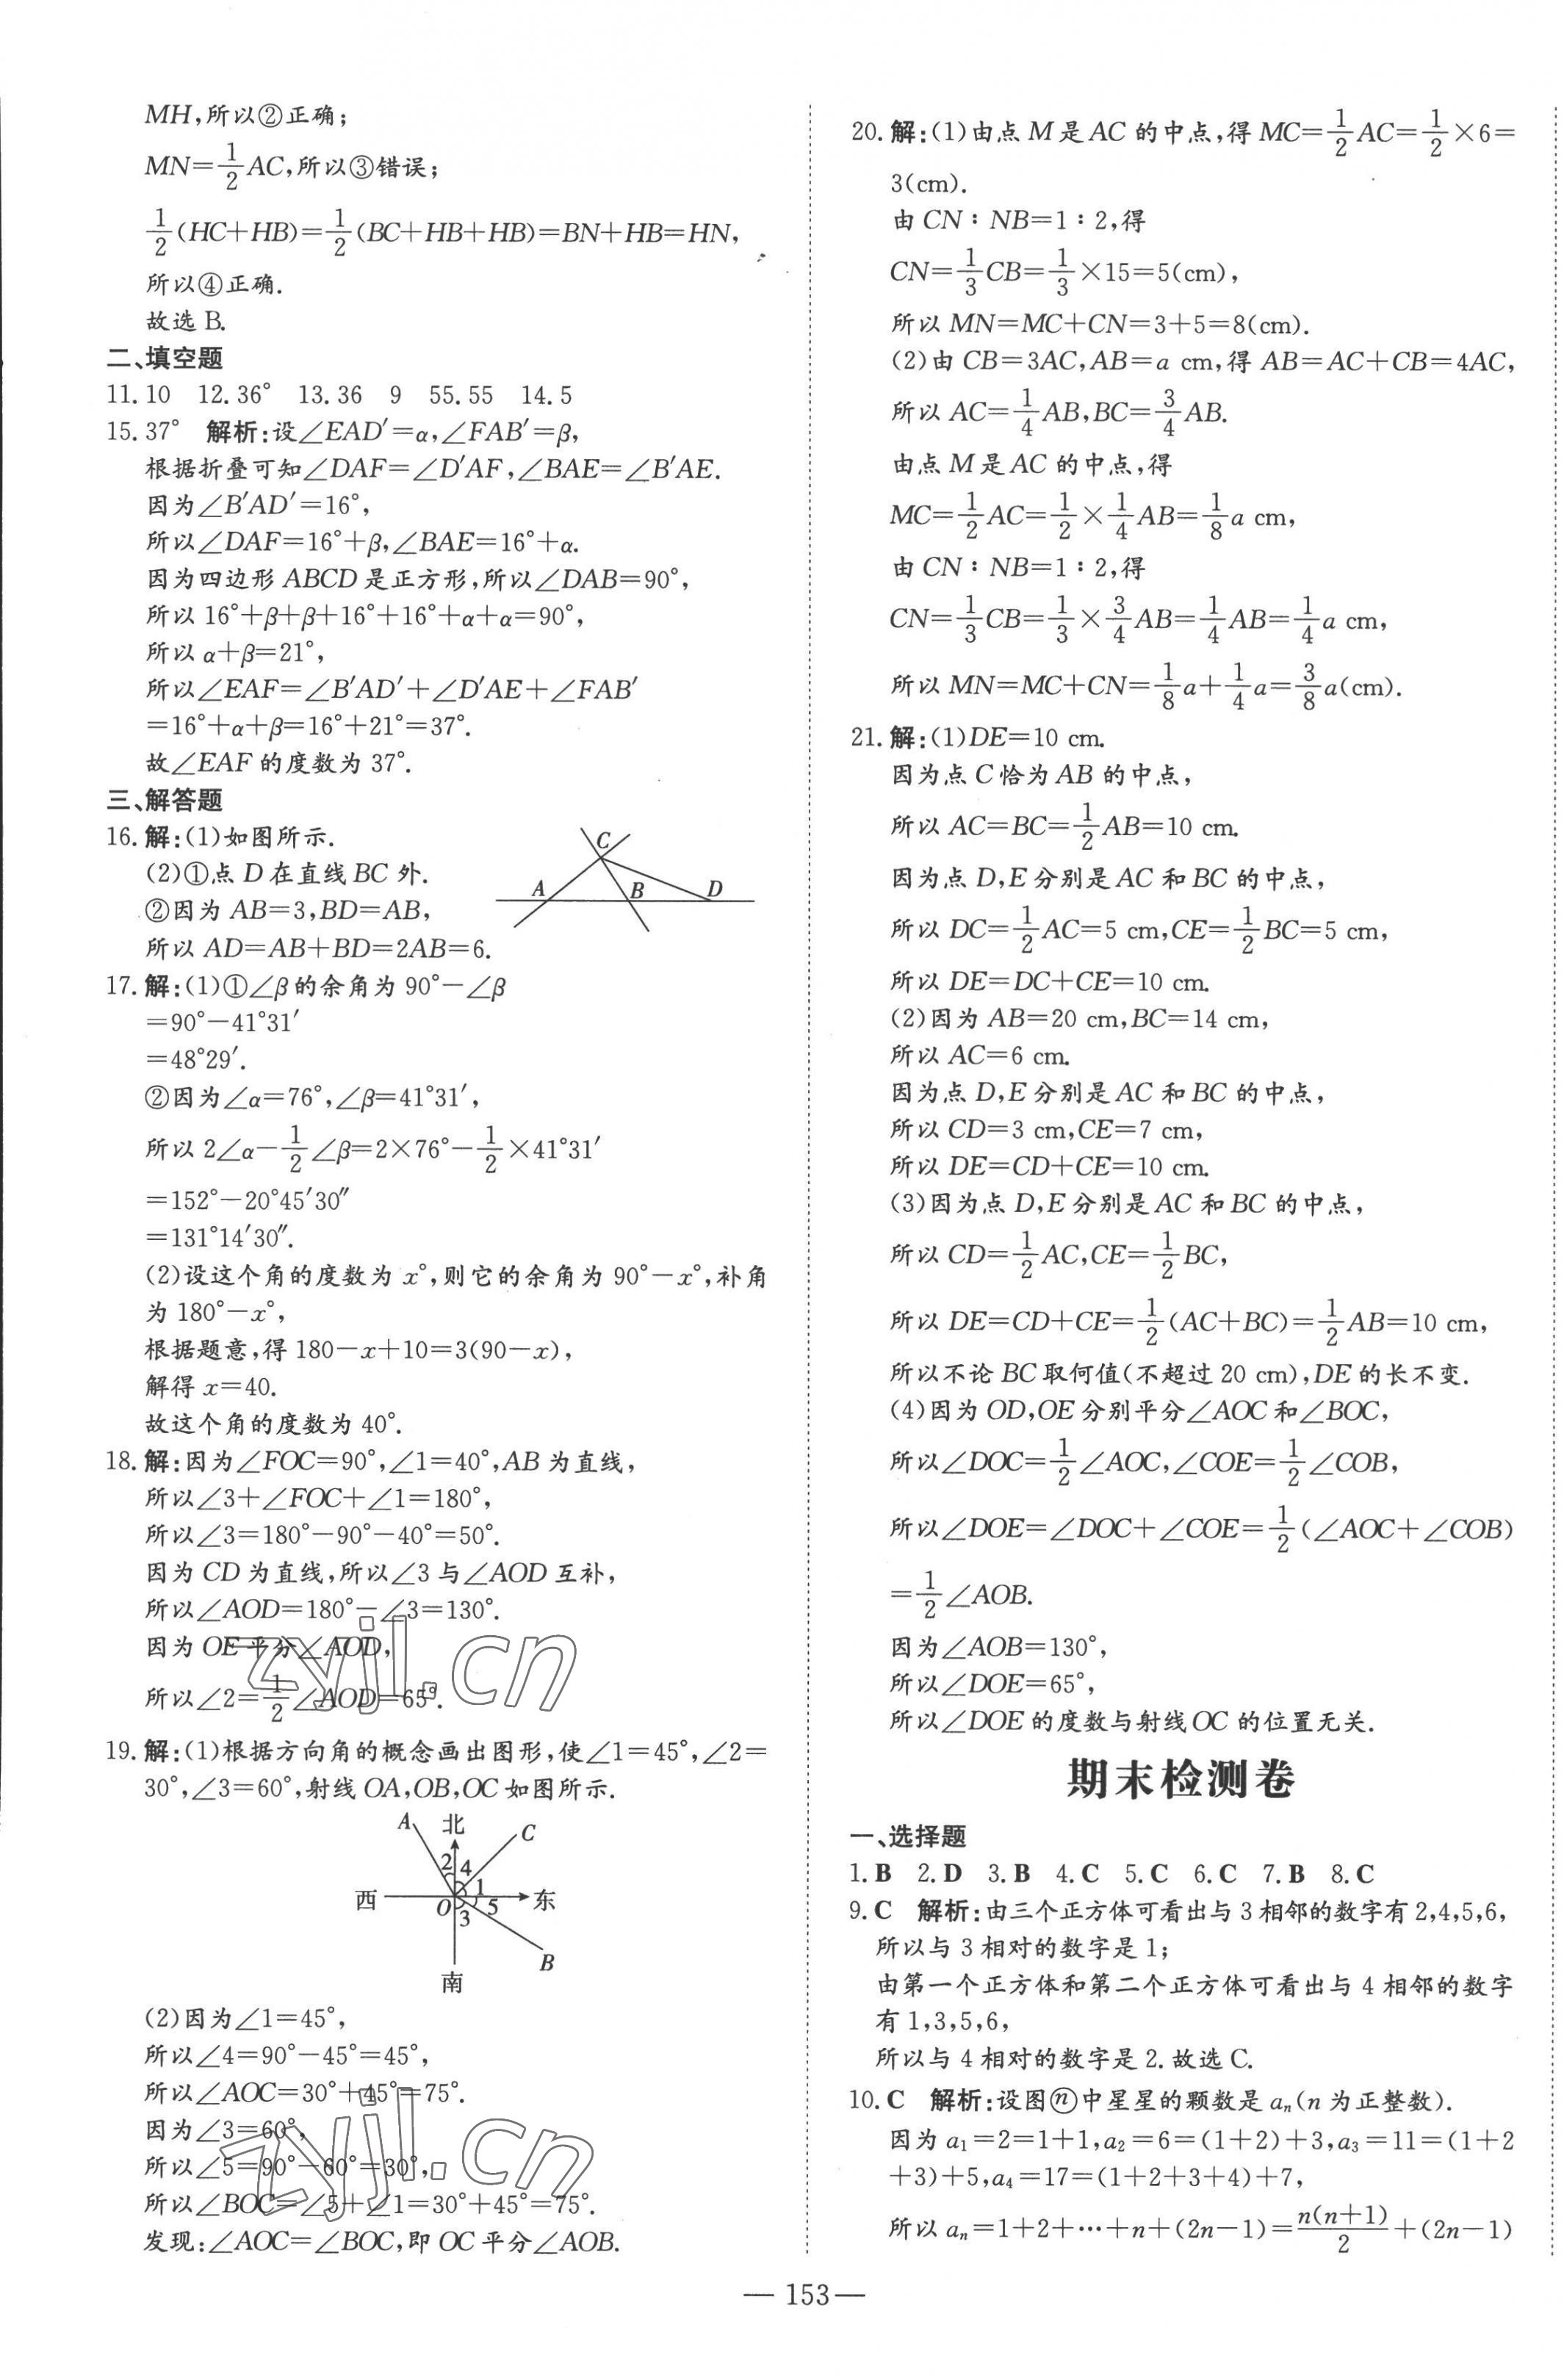 MH,所以②正确;
MN=1/2AC,所以③错误;
1/2(HC+HB)=1/2(BC+HB+HB)=BN+HB=HN,
所以④正确.
故选 B.
二、填空题
11.10 12.36° 13.36 9 55.55 14.5
15.37° 解析:设∠EAD′=α,∠FAB′=β,
根据折叠可知∠DAF=∠D′AF,∠BAE=∠B′AE.
因为∠B′AD′=16°,
所以∠DAF=16°+β,∠BAE=16°+α.
因为四边形 ABCD 是正方形,所以∠DAB=90°,
所以 16°+β+β+16°+16°+α+α=90°,
所以 α+β=21°,
所以∠EAF=∠B′AD′+∠D′AE+∠FAB′
=16°+α+β=16°+21°=37°.
故∠EAF 的度数为 37°.
三、解答题
16.解:(1)如图所示.
(2)①点 D 在直线 BC 外.
②因为 AB=3,BD=AB,
所以 AD=AB+BD=2AB=6.
C
A B D
17.解:(1)①∠β的余角为 90°-∠β
=90°-41°31′
=48°29′.
②因为∠α=76°,∠β=41°31′,
所以 2∠α-1/2∠β=2×76°-1/2×41°31′
=152°-20°45′30″
=131°14′30″.
(2)设这个角的度数为 x°,则它的余角为 90°-x°,补角
为 180°-x°,
根据题意,得 180-x+10=3(90-x),
解得 x=40.
故这个角的度数为 40°.
18.解:因为∠FOC=90°,∠1=40°,AB 为直线,
所以∠3+∠FOC+∠1=180°,
所以∠3=180°-90°-40°=50°.
因为 CD 为直线,所以∠3 与∠AOD 互补,
所以∠AOD=180°-∠3=130°.
因为 OE 平分∠AOD,
所以∠2=1/2∠AOD=65°.
zyjl.cn
19.解:(1)根据方向角的概念画出图形,使∠1=45°,∠2=
30°,∠3=60°,射线 OA,OB,OC 如图所示.
A 北 C
2 4
西 O 1 5 东
3
B
南
(2)因为∠1=45°,
所以∠4=90°-45°=45°,
所以∠AOC=30°+45°=75°.
因为∠3=60°,
所以∠5=90°-60°=30°,
所以∠BOC=∠5+∠1=30°+45°=75°.
发现:∠AOC=∠BOC,即 OC 平分∠AOB.
zyjl.cn
20.解:(1)由点 M 是 AC 的中点,得 MC=1/2AC=1/2×6=
3(cm).
由 CN∶NB=1∶2,得
CN=1/3CB=1/3×15=5(cm),
所以 MN=MC+CN=3+5=8(cm).
(2)由 CB=3AC,AB=a cm,得 AB=AC+CB=4AC,
所以 AC=1/4AB,BC=3/4AB.
由点 M 是 AC 的中点,得
MC=1/2AC=1/2×1/4AB=1/8a cm,
由 CN∶NB=1∶2,得
CN=1/3CB=1/3×3/4AB=1/4AB=1/4a cm,
所以 MN=MC+CN=1/8a+1/4a=3/8a(cm).
21.解:(1)DE=10 cm.
因为点 C 恰为 AB 的中点,
所以 AC=BC=1/2AB=10 cm.
因为点 D,E 分别是 AC 和 BC 的中点,
所以 DC=1/2AC=5 cm,CE=1/2BC=5 cm,
所以 DE=DC+CE=10 cm.
(2)因为 AB=20 cm,BC=14 cm,
所以 AC=6 cm.
因为点 D,E 分别是 AC 和 BC 的中点,
所以 CD=3 cm,CE=7 cm,
所以 DE=CD+CE=10 cm.
(3)因为点 D,E 分别是 AC 和 BC 的中点,
所以 CD=1/2AC,CE=1/2BC,
所以 DE=CD+CE=1/2(AC+BC)=1/2AB=10 cm,
所以不论 BC 取何值(不超过 20 cm),DE 的长不变.
(4)因为 OD,OE 分别平分∠AOC 和∠BOC,
所以∠DOC=1/2∠AOC,∠COE=1/2∠COB,
所以∠DOE=∠DOC+∠COE=1/2(∠AOC+∠COB)
=1/2∠AOB.
因为∠AOB=130°,
所以∠DOE=65°,
所以∠DOE 的度数与射线 OC 的位置无关.
期末检测卷
一、选择题
1.B 2.D 3.B 4.C 5.C 6.C 7.B 8.C
9.C 解析:由三个正方体可看出与 3 相邻的数字有 2,4,5,6,
所以与 3 相对的数字是 1;
由第一个正方体和第二个正方体可看出与 4 相邻的数字
有 1,3,5,6,
所以与 4 相对的数字是 2.故选 C.
10.C 解析:设图ⓝ中星星的颗数是 aₙ(n 为正整数).
因为 a₁=2=1+1,a₂=6=(1+2)+3,a₃=11=(1+2
+3)+5,a₄=17=(1+2+3+4)+7,
所以 aₙ=1+2+⋯+n+(2n-1)=n(n+1)/2+(2n-1)
— 153 —